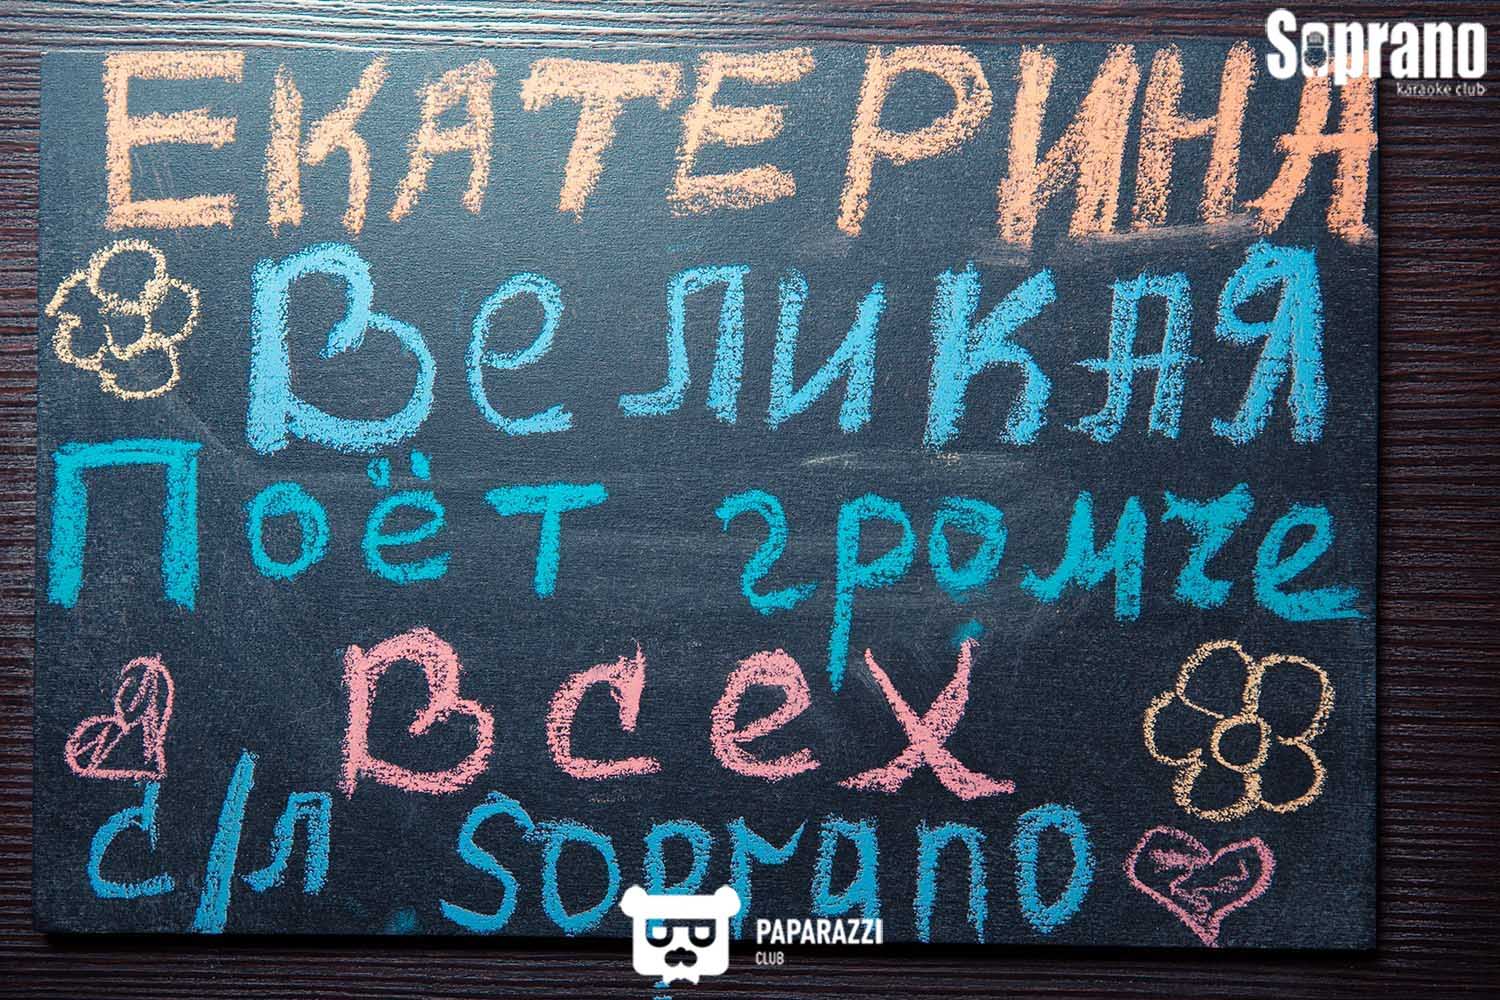 Soprano
karaoke club
ЕКАТЕРИНА
Великая
Поёт громче
Всех
с/л Soprano
PAPARAZZI
CLUB